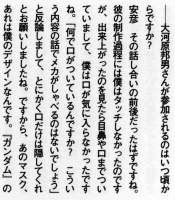 ――大河原邦男さんが参加されるのはいつ頃か
らですか？
安彦　その話し合いの前後だったはずですね。
彼の制作過程には僕はタッチしなかったのです
が、出来上がったのを見たら目鼻や口までつい
ていまして、僕は口が気に入らなかったです
ね。「何で口がついているんですか？　こうい
う内容の話でメカがしゃべるのはないでしょう」
と反論しまして、とにかく口だけは隠してくれ
とお願いしましたね。ですから、あのマスク、
あれは僕のデザインなんです。『ガンダム』の